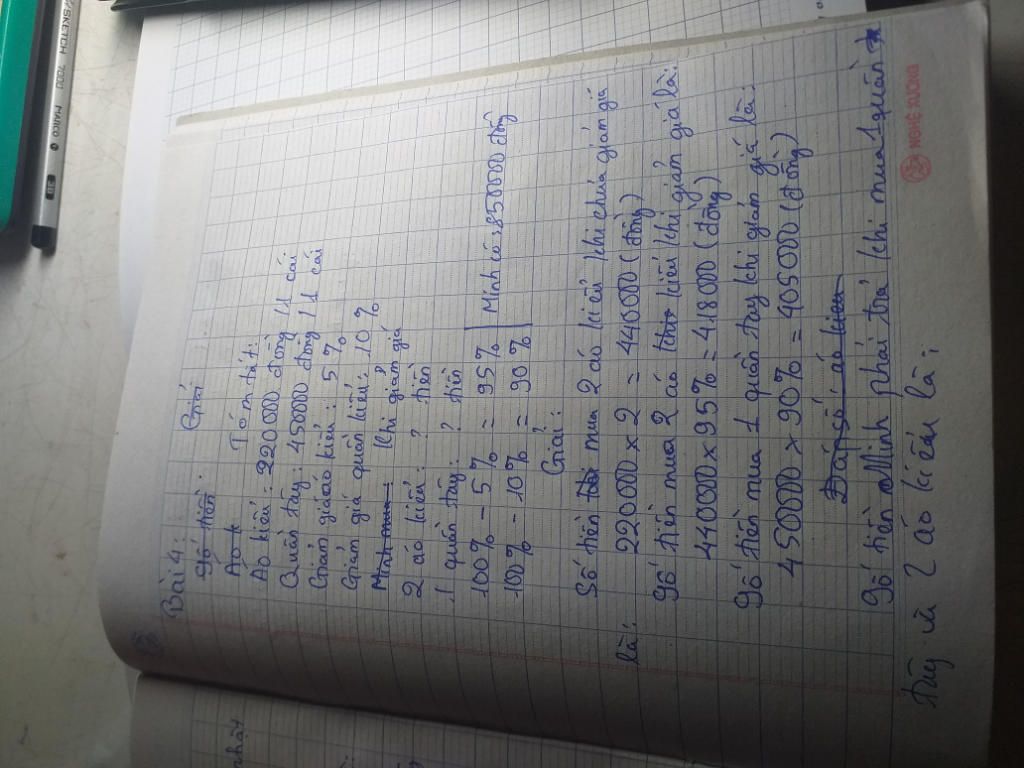 Bài 4: Giải
Số tiền:
Áo k Tóm tắt:
Áo kiểu: 220000 đồng / 1 cái
Quần tây: 450000 đồng / 1 cái
Giảm giá áo kiểu: 5 %
Giảm giá quần kiểu: 10 %
Minh mua: Khi giảm giá
2 áo kiểu: ? tiền
1 quần tây: ? tiền
100% - 5 % = 95 %
100% - 10 % = 90 %
Minh có: 850000 đồng
Giải:
Số tiền mua 2 áo kiểu khi chưa giảm giá
là: 220000 x 2 = 440000 (đồng)
Số tiền mua 2 áo kiểu khi giảm giá là:
440000 x 95 % = 418000 (đồng)
Số tiền mua 1 quần tây khi giảm giá là:
450000 x 90% = 405000 (đồng)
Đáp số: áo kiểu
Số tiền Minh phải trả khi mua 1 quần
tây và 2 áo kiểu là:
NGHỆ XƯƠNG
SKETCH
7000
MARCO
3B